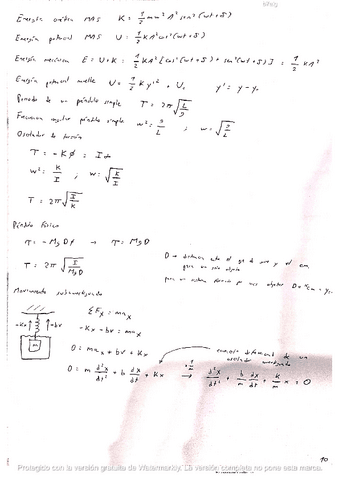 Energía cinética MAS K = 1/2 mw²A² sen²(wt+δ)
Energía potencial MAS U = 1/2 KA² cos²(wt+δ)
Energía mecánica E = U+K = 1/2 KA² [cos²(wt+δ) + sen²(wt+δ)] = 1/2 KA²
Energía potencial muelle U = 1/2 Ky'² + U₀ y' = y - y₀
Periodo de un péndulo simple T = 2π√(L/g)
Frecuencia angular péndulo simple w² = g/L ; w = √(g/L)
Oscilador de torsión
τ = -Kφ = Iα
w² = K/I ; w = √(K/I)
T = 2π√(I/K)
Péndulo físico
τ = -MgDφ → τ = MgD
T = 2π√(I/MgD)
D → distancia entre el
para un solo objeto
para un sistema formado por varios objetos D =
Movimiento subamortiguado
ΣFx = max
-Kx - bv = max
0 = max + bv + Kx
ecuación diferencial de un
oscilador amortiguado
0 = m d²x/dt² + b dx/dt + Kx → d²x/dt² + b/m dx/dt + K/m x = 0
-Kx
-bv
m
10
Protegido con la versión gratuita de Watermarkly. La versión completa no pone esta marca.